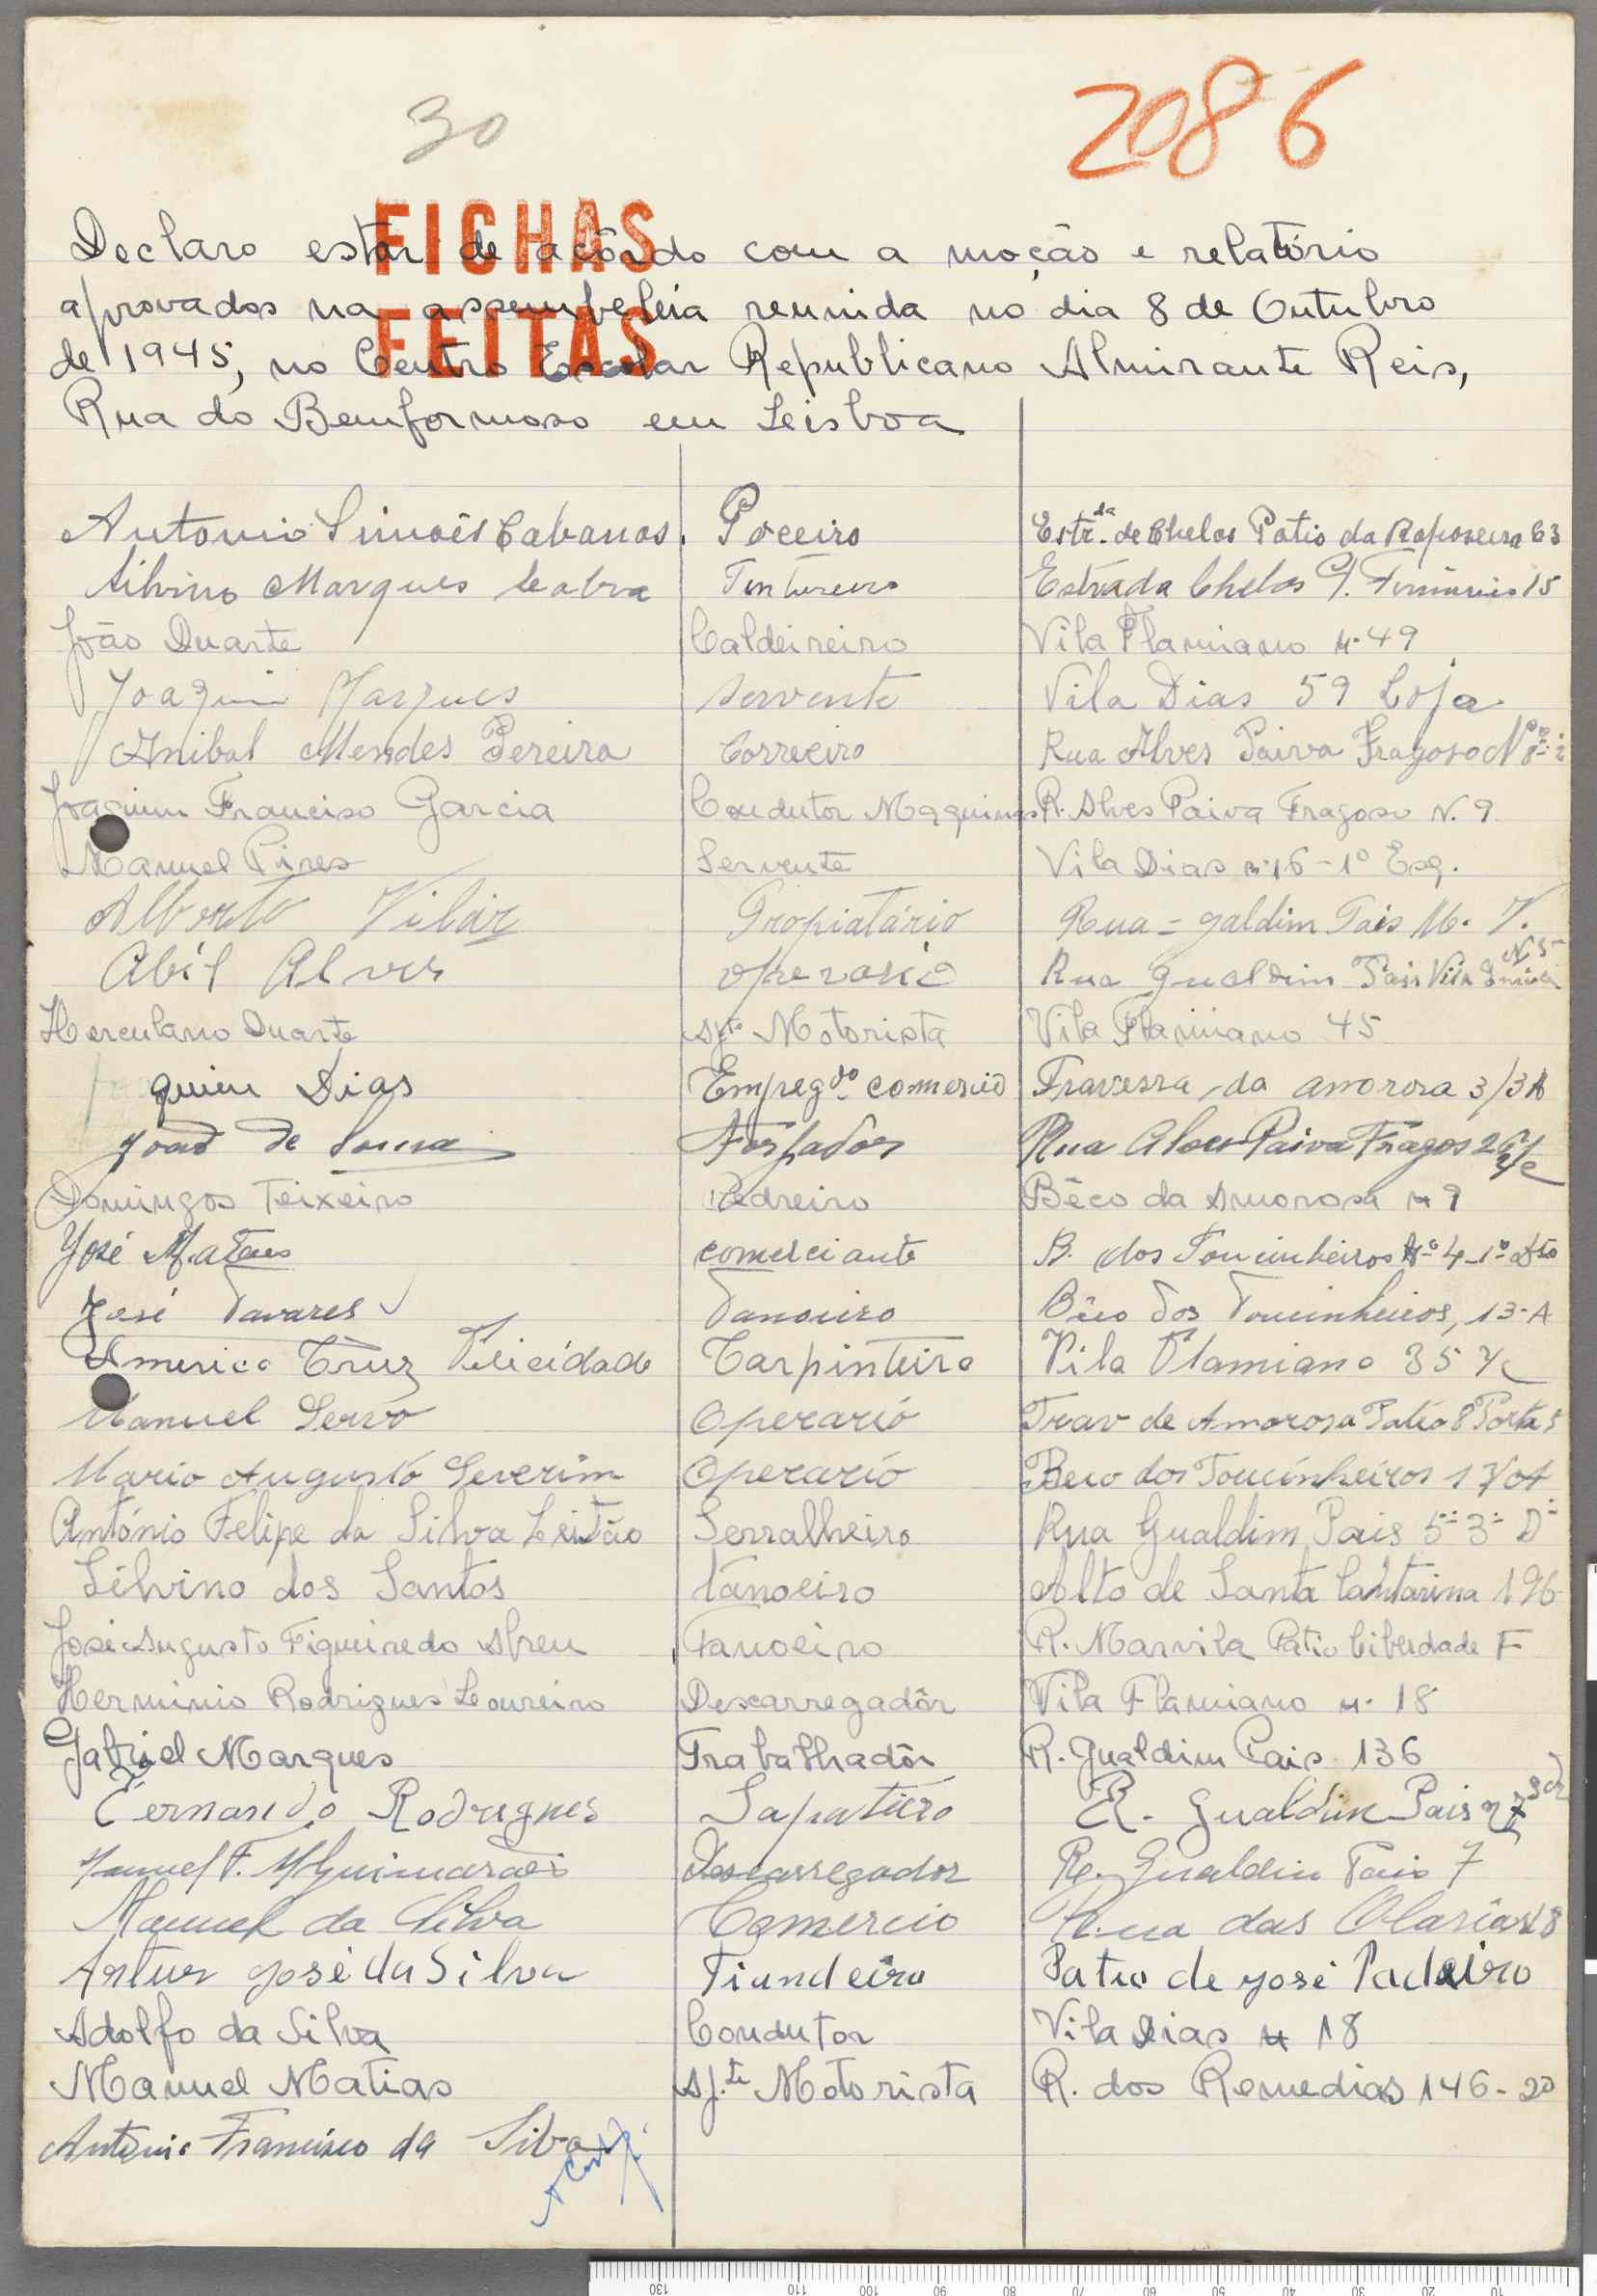 30
2086
FICHAS
FEITAS
Declaro estar de acôrdo com a moção e relatório
aprovados na assembeleia reunida no dia 8 de Outubro
de 1945, no Centro Escolar Republicano Almirante Reis,
Rua do Bemformoso em Leisboa
Antonio Simoês Cabanas. Poceiro Estr.da de Chelas Patio da Raposeira 63
Silvino Marques Seabra Tintureiro Estrada Chelas P. 15
João Duarte Caldeireiro Vila Flamiano n. 49
Joaquim Marques servente Vila Dias 59 Loja
Anibal Mendes Pereira Correeiro Rua Alves Paiva Fragoso
Joaquim Franciso Garcia Condutor Maquinas R. Alves Paiva Fragoso N. 9
Manuel Pires Servente Vila Dias n. 16 - 1º Esq.
Alberto Vilar Propiatário Rua = galdim Pais M. V.
Abíl Alves operario Rua gualdim Pais Vila N 5
Herculano Duarte ajte Motorista Vila Flamiano 45
quim Dias Empregdo comercio Travessa da amorosa 3/3A
João de Sousa Forjador Rua Alves Paiva Fragos
Domingos Teixeira Pedreiro Bêco da Amorosa n 9
José Mateus comerciante B. dos Toucinheiros Nº 4-1º Dto
José Tavares Tanoeiro Bêco dos Toucinheiros, 13-A
Americo Cruz Felicidade Carpinteiro Vila Flamiano 35 r/c
Manuel Servo Operarió Trav de Amorosa Patio 8 Porta 5
Mario Augusto Severim Operarío Beco dos Toucinheiros
António Felipe da Silva Leitão Serralheiro Rua Gualdim Pais 5-3-D
Silvino dos Santos Tanoeiro Alto de Santa Cantarina 196
José Augusto Figueiredo Abreu Tanoeiro R. Marvila Patio Liberdade F
Herminio Rodrigues Loureiro Descarregadôr Vila Flamiano n. 18
Gabriel Marques Trabalhadôr R. Gualdim Pais 136
Fernando Rodrigues Sapateiro R. Gualdim Pais
Manuel F. M Guimarães Descarregador R. Gualdim Pais 7
Manuel da Silva Comercio Rua das Olarias 18
Artur José da Silva Fiandeiro Patio de José Padeiro
Adolfo da Silva Condutor Vila Dias n 18
Manuel Matias aj.te Motorista R. dos Remedios 146-2º
Antonio Francisco da Silva